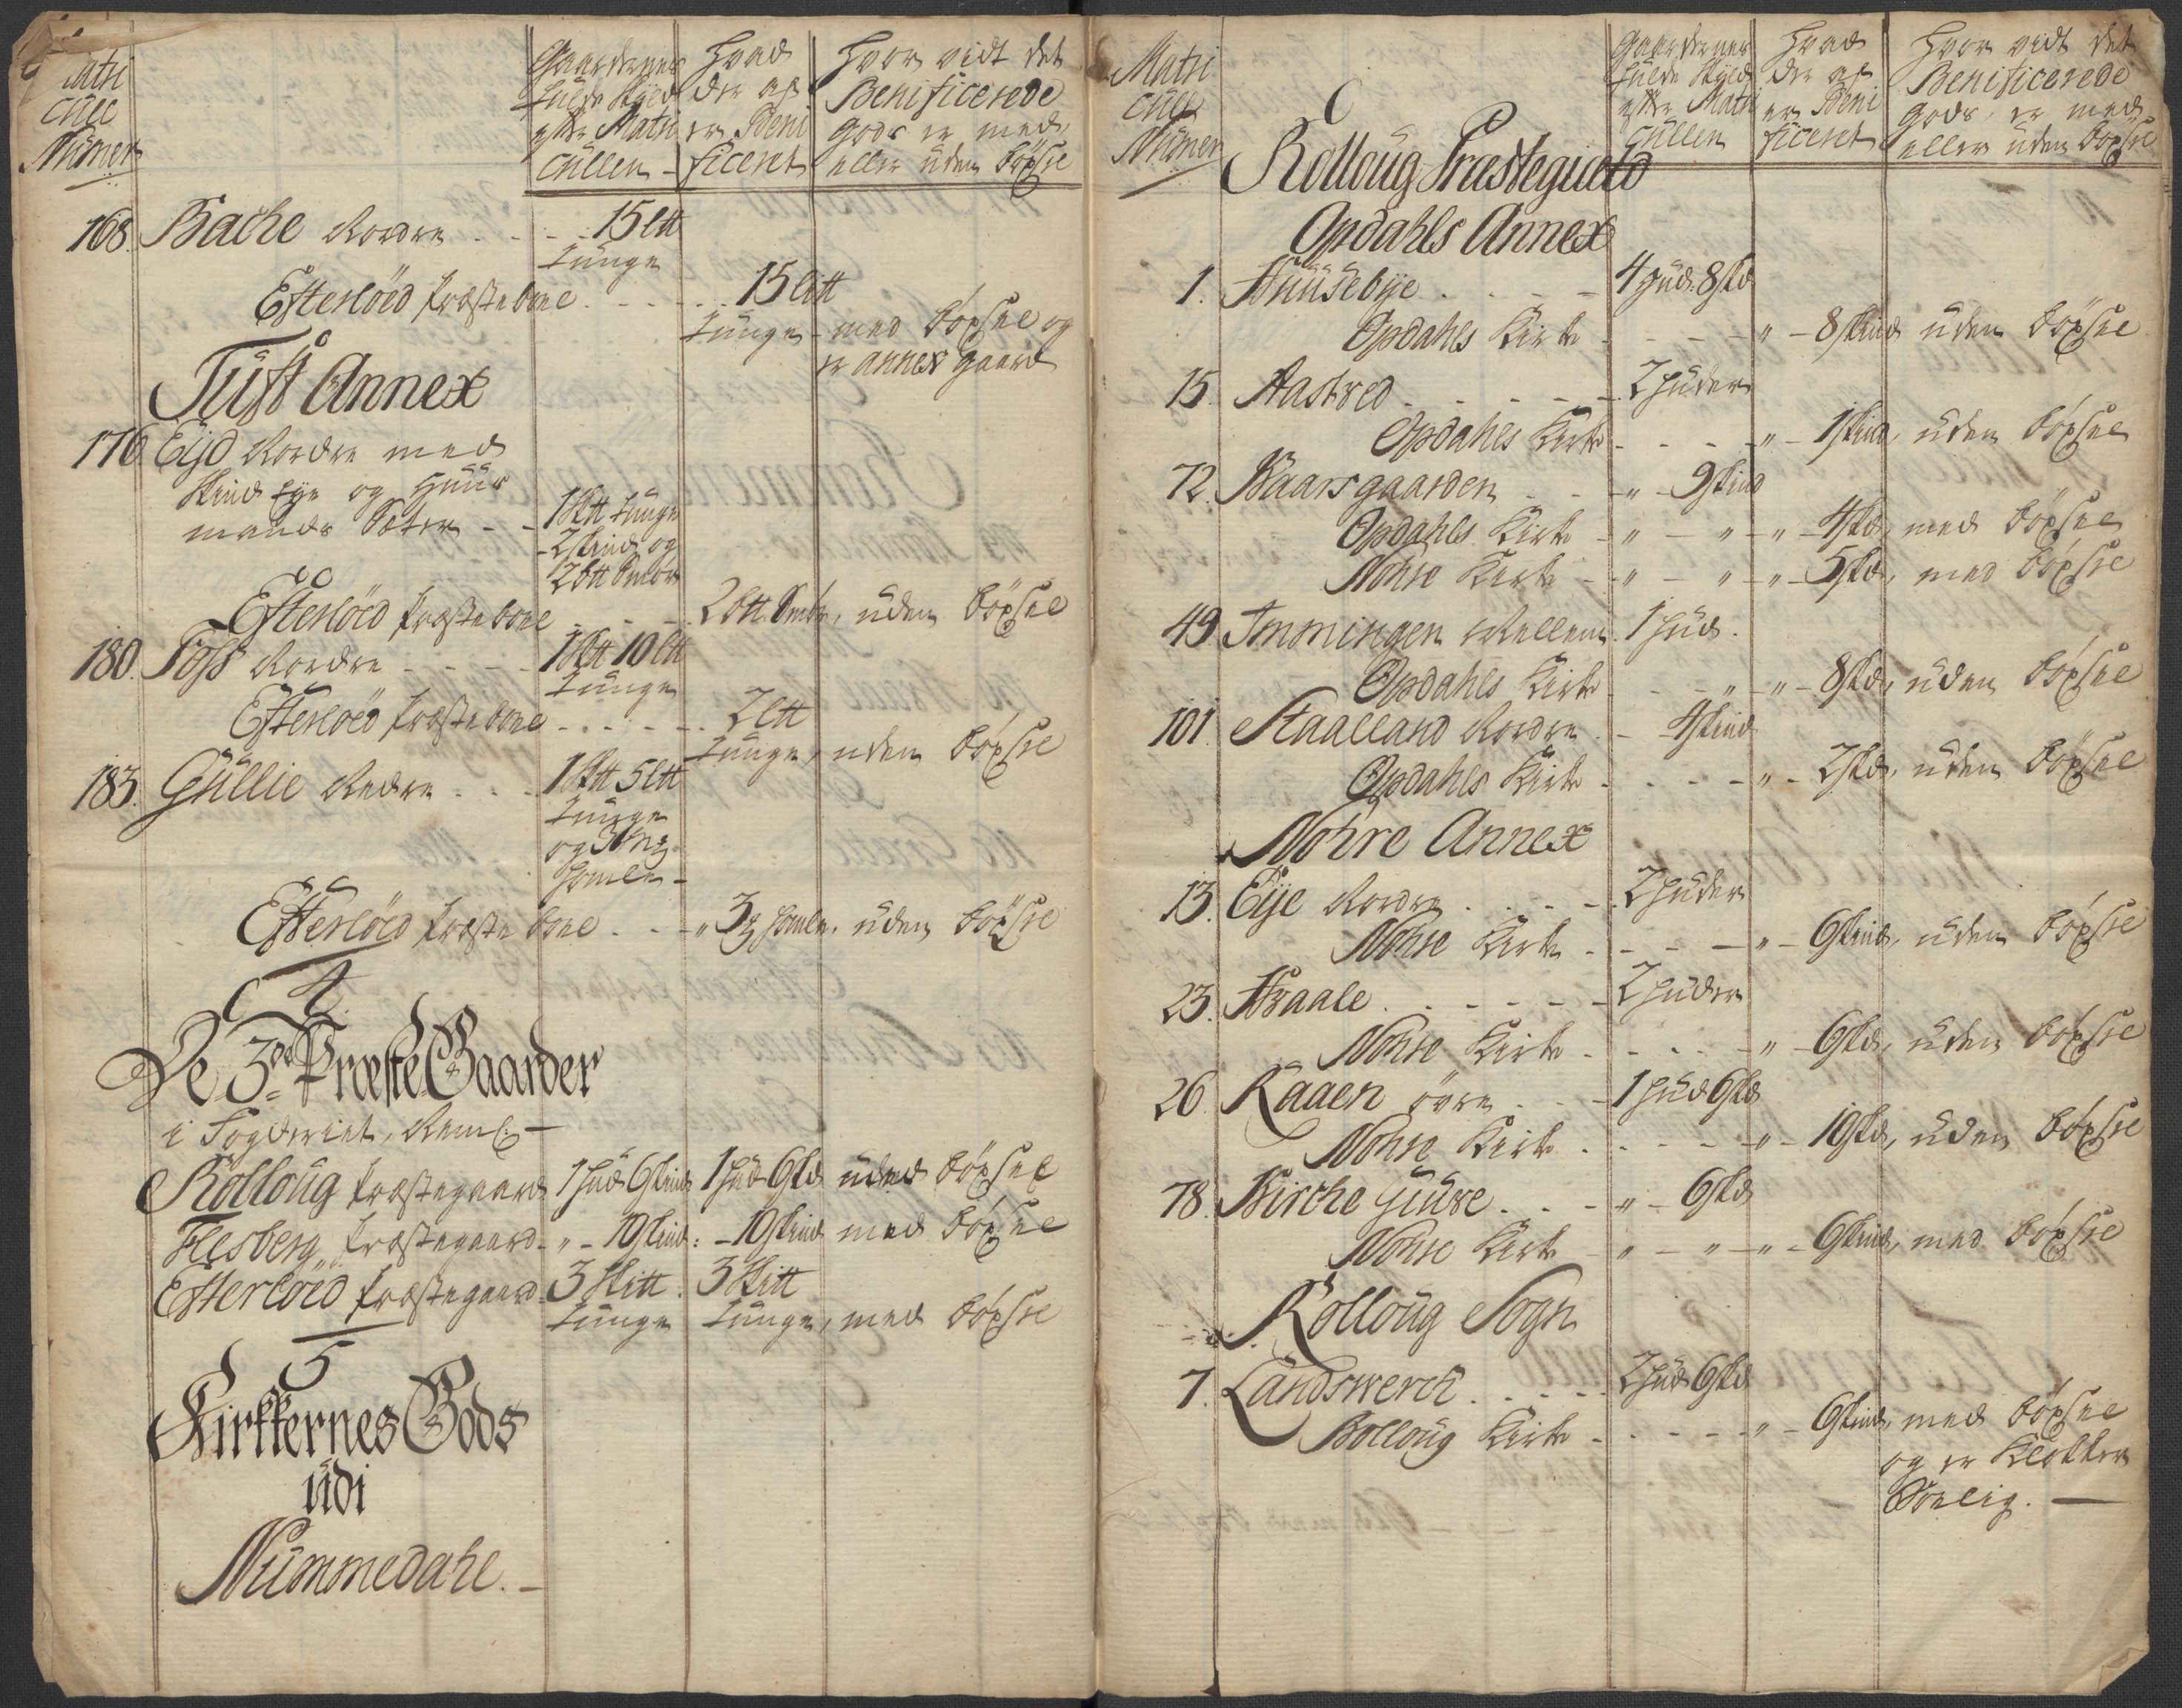 Matri
cull
Numer
Gaardernes
fulde Skyld
efter Matri
cullen
Hvad
der af
er Beni
ficeret
Hvor vidt det
Benificerede
Gods er med
eller uden böxsel
168. Bache Nordre . . . . 15 Ltt
tunge
Efterlöed præsteboel . . . . . 15 Ltt
tunge - med böxsel og
er annex gaard
Tuft Annex
176. Eijd Nordre med
Skindtije og Huus
mands Sæter - - 1 Sktt tunge
- 2 skind og
2 btt Smör
Efterlöed præsteboel - - - 2 btt Smör, uden böxsel
180. Foss Nordre - - - - 1 Sktt 10 Ltt
tunge
Efterlöed præsteboel - . . . - . 2 Ltt
tunge, uden böxsel
183. Gullie Nedre . . . 1 Sktt 5 Ltt
tunge
og 3
Homle -
Efterlöed præsteboel . . - „ 3 Homle. uden böxsel
4.
De 3de Præste Gaarder
i Fogderiet, Neml. -
Rolloug præstegaard 1 Hud 6 skind 1 Hud 6 skd uden böxsel
Flesberg præstegaard - „ - 10 skind: - 10 skind med böxsel
Efterloed præstegaard - 3 Skitt. 3 Skitt
tunge tunge, med böxsel
5
Kirkkernes Gods
udi
Nummedahl. -
Matri
cull
Numer
Gaardernes
fulde Skyld
efter Matri
cullen
Hvad
der af
er Beni
ficeret
Hvor vidt det
Benificerede
Gods, er med
eller uden böxsel
Rolloug Præstegield
Opdahls Annex
1. Huusebye . . . - 4 Hud. 8 skd
Opdahls Kirke - - - - „ - 8 skind uden böxsel
15. Aasbred . - - - - - 2 Huder
Opdahls Kirke - - - - „ - 1 skind, uden böxsel
72. Baarsgaarden - - - „ - 9 skind
Opdahls Kirke - „ - „ - „ - 4 skd, med böxsel
Nohre Kirke - - „ - „ - „ - 5 skd, med böxsel
49. Immingen Mellem. 1 Hud.
Opdahls Kirke - - - „ - „ - 8 skd, uden böxsel
101. Staalland Nordre . - 4 skind
Opdahls Kirke . - - - - „ - 2 skd, uden böxsel
Nohre Annex
13. Eije Nordre . . . - . 2 Huder
Nohre Kirke - - - - - „ - 6 skind, uden böxsel
23. Hvaale . - - - - - 2 Huder
Nohre Kirke . - . . . - „ - 6 skd, uden böxsel
26. Raaen övre - - - 1 Hud 6 skd
Nohre Kirke . - - - - „ - 10 skd, uden böxsel
78. Kirche Giuve . . - „ - 6 skd
Nohre Kirke - „ - „ - „ - 6 skind, med böxsel
Rolloug Sogn
7. Landswerch . . - - . 2 Hud 6 skd
Rolloug Kirke - . - - - „ - 6 skind, med böxsel
og er Klokker
Boelig. -